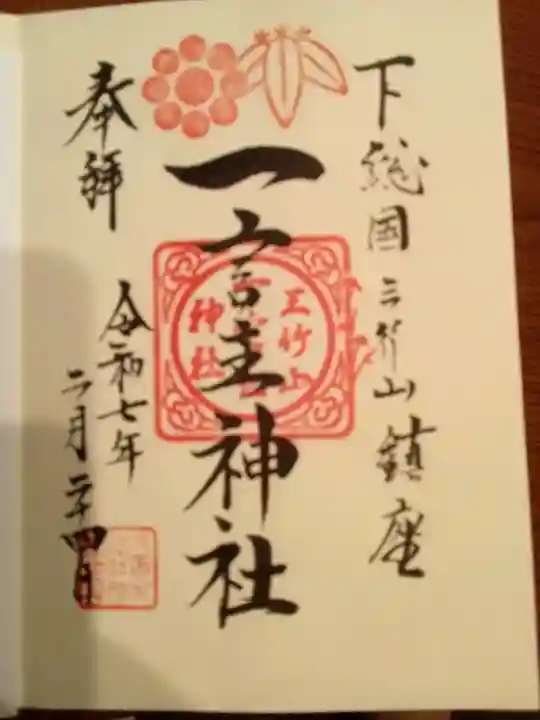 下総国三竹山鎮座
一言主神社
奉拝
令和七年
二月二十四日
三竹山
神社